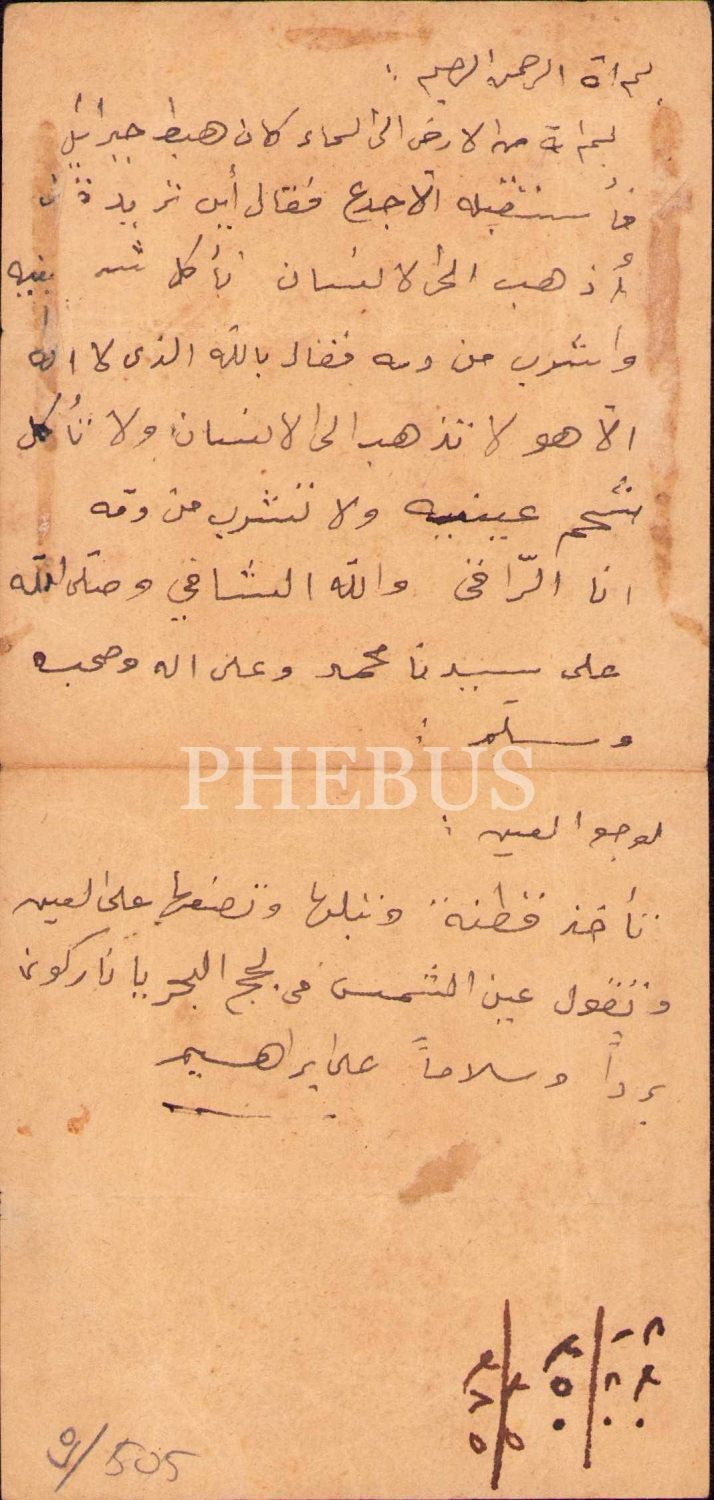 بسم الله الرحمن الرحيم :
بسم الله من الارض الى السماء كان هبط جبرائيل
فأستقبله الاجدع فقال أين تريد قال
أذهب الى الانسان نأكل شحم عينيه
واشرب من دمه فقال بالله الذى لا اله
الا هو لا تذهب الى الانسان ولا تأكل
شحم عينيه ولا تشرب من دمه
انا الرّاقى والله الشافي وصلى الله
على سيدنا محمد وعلى اله وصحبه
وسلّم :
PHEBUS
لوجع العين :
تأخذ قطنة وتبلها وتضعها على العين
وتقول عين الشمس فى لجج البحر يا نار كونى
برداً وسلاماً على ابراهيم
9/505